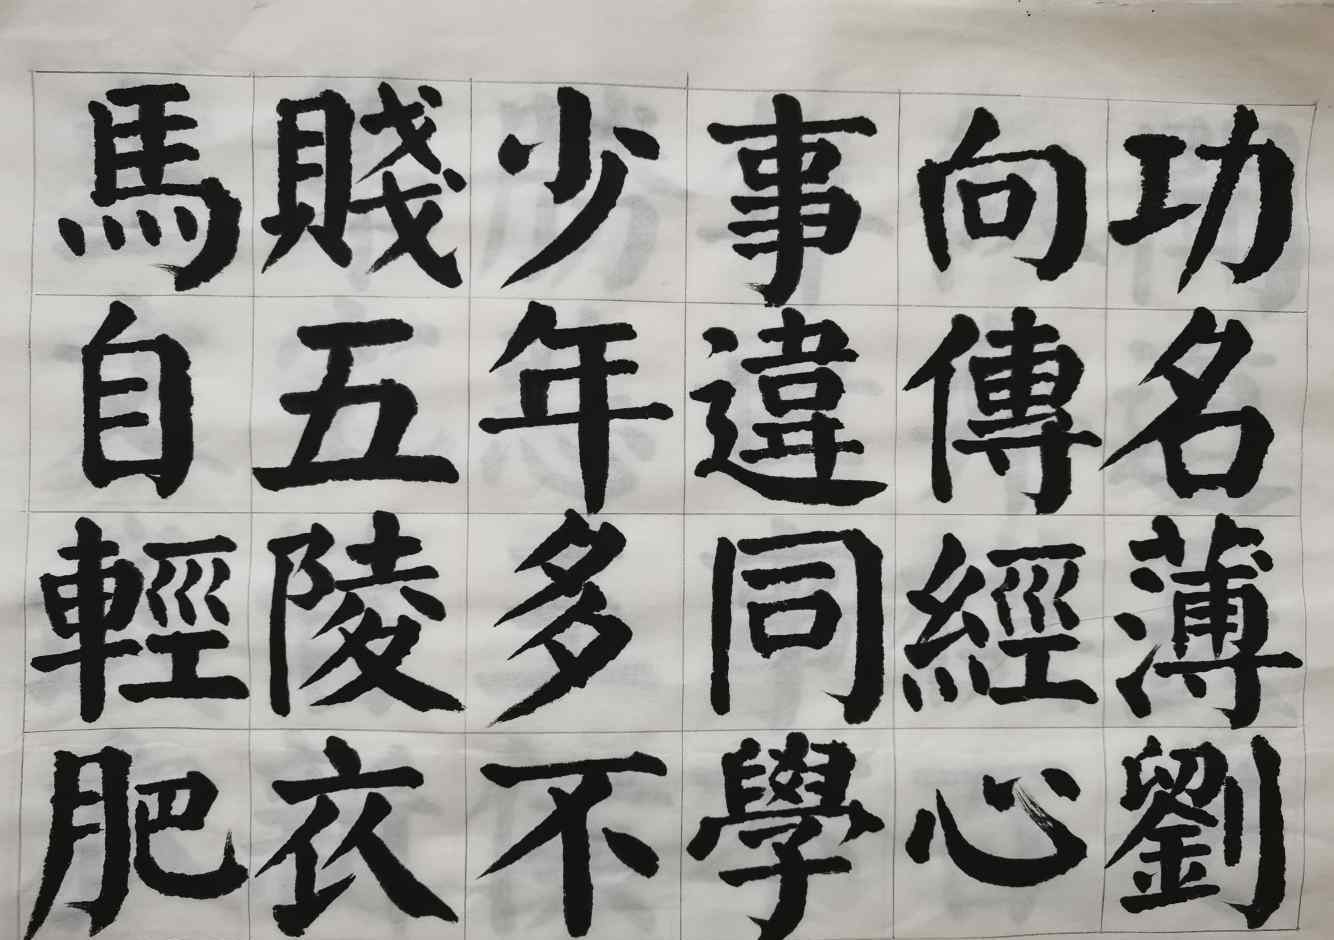 功名薄劉
向傳經心
事違同學
少年多不
賤五陵衣
馬自輕肥